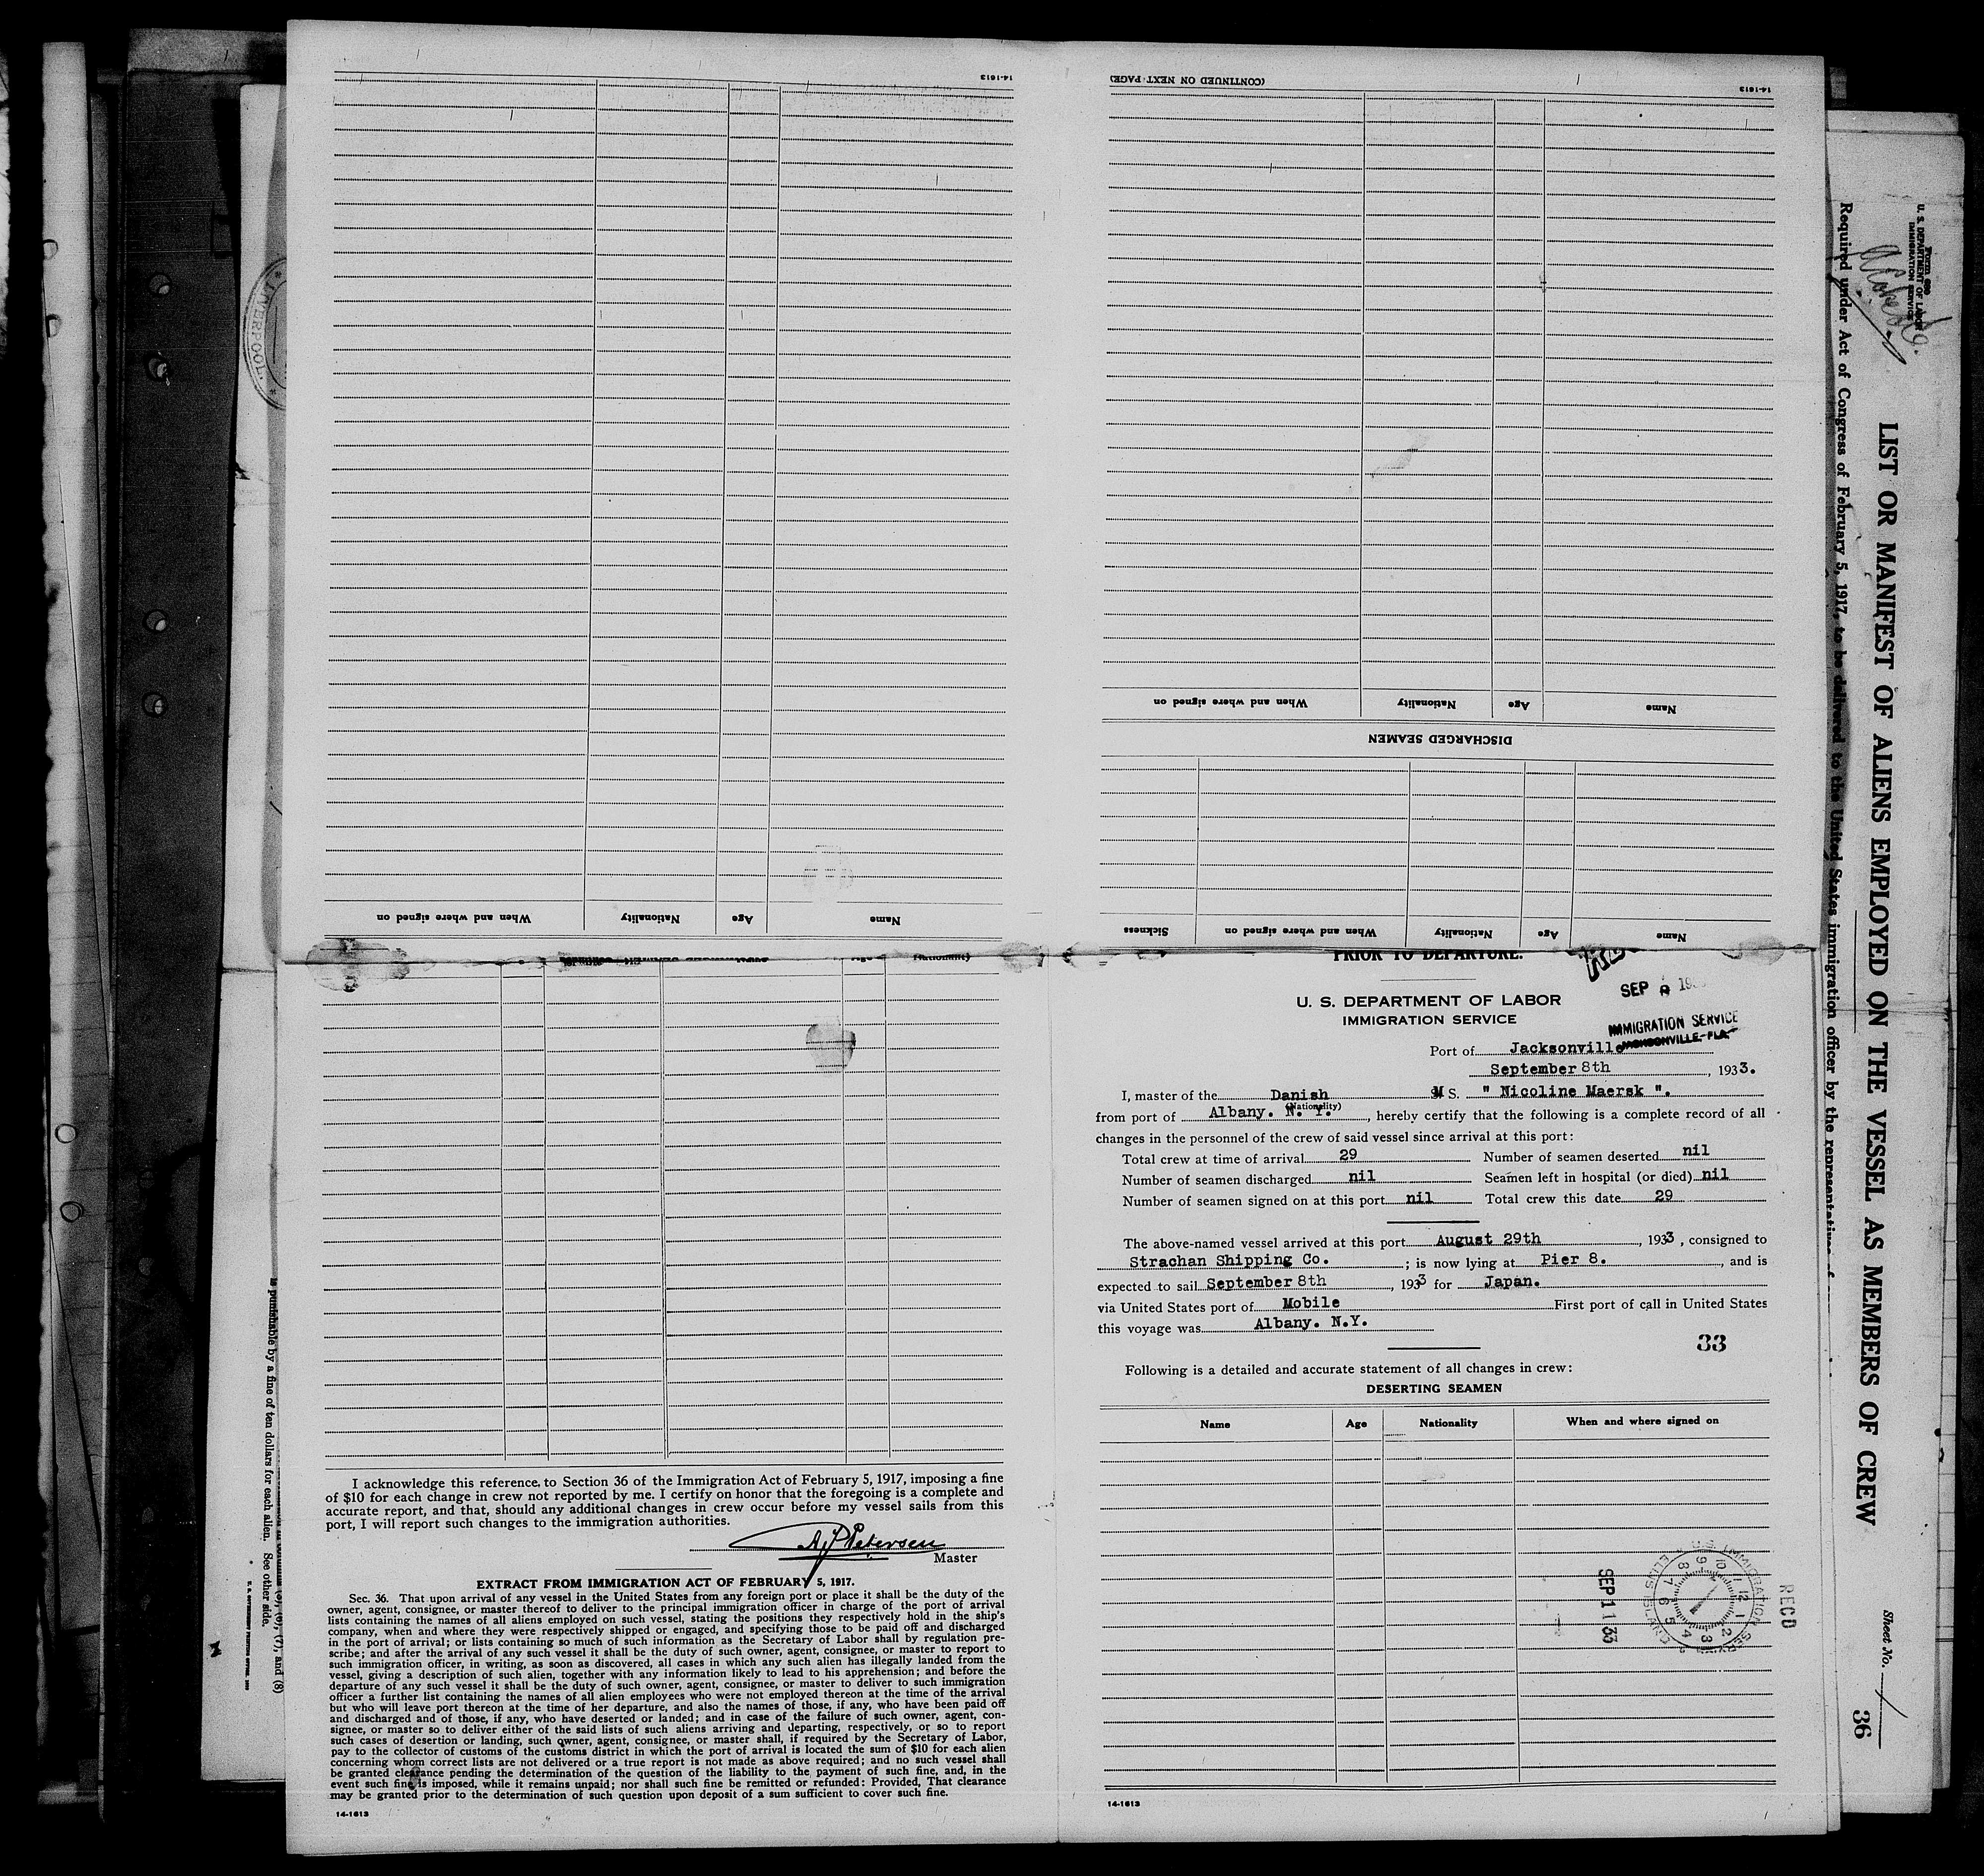 14-1613
(CONTINUED ON NEXT PAGE)
14-1613
When and where signed on
Nationality
Age
Name
DISCHARGED SEAMEN
Sickness
When and where signed on
Nationality
Age
Name
When and where signed on
Nationality
Age
Name
PRIOR TO DEPARTURE.
SEP 8 19
U. S. DEPARTMENT OF LABOR
IMMIGRATION SERVICE
IMMIGRATION SERVICE
JACKSONVILLE-FLA.
Port of Jacksonville
September 8th, 1933.
I, master of the Danish M S. " Nicoline Maersk ".
(Nationality)
from port of Albany. N. Y., hereby certify that the following is a complete record of all
changes in the personnel of the crew of said vessel since arrival at this port:
Total crew at time of arrival 29 Number of seamen deserted nil
Number of seamen discharged nil Seamen left in hospital (or died) nil
Number of seamen signed on at this port nil Total crew this date 29
The above-named vessel arrived at this port August 29th, 1933, consigned to
Strachan Shipping Co.; is now lying at Pier 8., and is
expected to sail September 8th, 1933 for Japan.
via United States port of Mobile First port of call in United States
this voyage was Albany. N.Y.
33
Following is a detailed and accurate statement of all changes in crew:
DESERTING SEAMEN
Name Age Nationality When and where signed on
RECD
U.S. IMMIGRATION SERVICE
ELLIS ISLAND
SEP 11 33
14-1613
I acknowledge this reference to Section 36 of the Immigration Act of February 5, 1917, imposing a fine
of $10 for each change in crew not reported by me. I certify on honor that the foregoing is a complete and
accurate report, and that, should any additional changes in crew occur before my vessel sails from this
port, I will report such changes to the immigration authorities.
A Petersen
Master
EXTRACT FROM IMMIGRATION ACT OF FEBRUARY 5, 1917.
Sec. 36. That upon arrival of any vessel in the United States from any foreign port or place it shall be the duty of the
owner, agent, consignee, or master thereof to deliver to the principal immigration officer in charge of the port of arrival
lists containing the names of all aliens employed on such vessel, stating the positions they respectively hold in the ship's
company, when and where they were respectively shipped or engaged, and specifying those to be paid off and discharged
in the port of arrival; or lists containing so much of such information as the Secretary of Labor shall by regulation pre-
scribe; and after the arrival of any such vessel it shall be the duty of such owner, agent, consignee, or master to report to
such immigration officer, in writing, as soon as discovered, all cases in which any such alien has illegally landed from the
vessel, giving a description of such alien, together with any information likely to lead to his apprehension; and before the
departure of any such vessel it shall be the duty of such owner, agent, consignee, or master to deliver to such immigration
officer a further list containing the names of all alien employees who were not employed thereon at the time of the arrival
but who will leave port thereon at the time of her departure, and also the names of those, if any, who have been paid off
and discharged and of those, if any, who have deserted or landed; and in case of the failure of such owner, agent, con-
signee, or master so to deliver either of the said lists of such aliens arriving and departing, respectively, or so to report
such cases of desertion or landing, such owner, agent, consignee, or master shall, if required by the Secretary of Labor,
pay to the collector of customs of the customs district in which the port of arrival is located the sum of $10 for each alien
concerning whom correct lists are not delivered or a true report is not made as above required; and no such vessel shall
be granted clearance pending the determination of the question of the liability to the payment of such fine, and, in the
event such fine is imposed, while it remains unpaid; nor shall such fine be remitted or refunded: Provided, That clearance
may be granted prior to the determination of such question upon deposit of a sum sufficient to cover such fine.
14-1613
U. S. DEPARTMENT OF LABOR
IMMIGRATION SERVICE
LIST OR MANIFEST OF ALIENS EMPLOYED ON THE VESSEL AS MEMBERS OF CREW
Required under Act of Congress of February 5, 1917, to be delivered to the United States immigration officer by the representative of
Sheet No. 1
36
LIVERPOOL
is punishable by a fine of ten dollars for each alien. See other side.
(7), and (8)